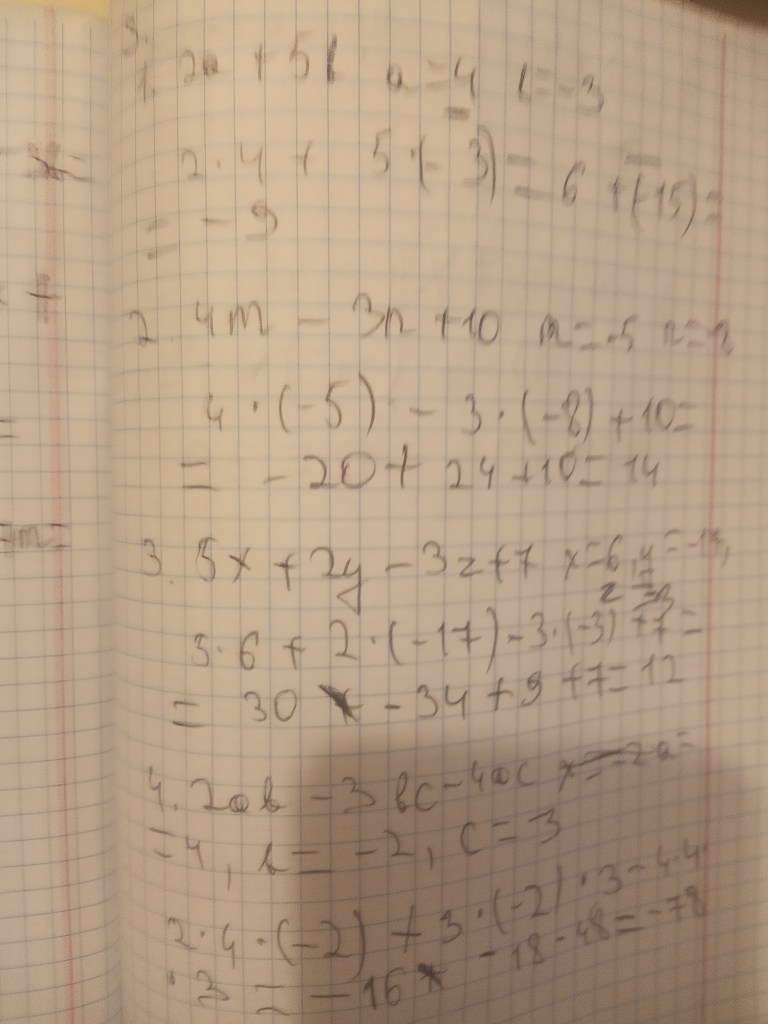 3.
1. 2a + 5b a = 4 b = -3
2 · 4 + 5 · (-3) = 6 + (-15) =
= -9
2. 4m - 3n + 10 m = -5 n =
4 · (-5) - 3 · (-8) + 10 =
= -20 + 24 + 10 = 14
3. 5x + 2y - 3z + 7 x = 6, y =
z = -3
5 · 6 + 2 · (-17) - 3 · (-3) + 7 =
= 30 - 34 + 9 + 7 = 12
4. 2ab - 3bc - 4ac a =
= 4, b = -2, c = 3
2 · 4 · (-2) + 3 · (-2) · 3 - 4 · 4 ·
· 3 = -16 - 18 - 48 = -78
=
m =